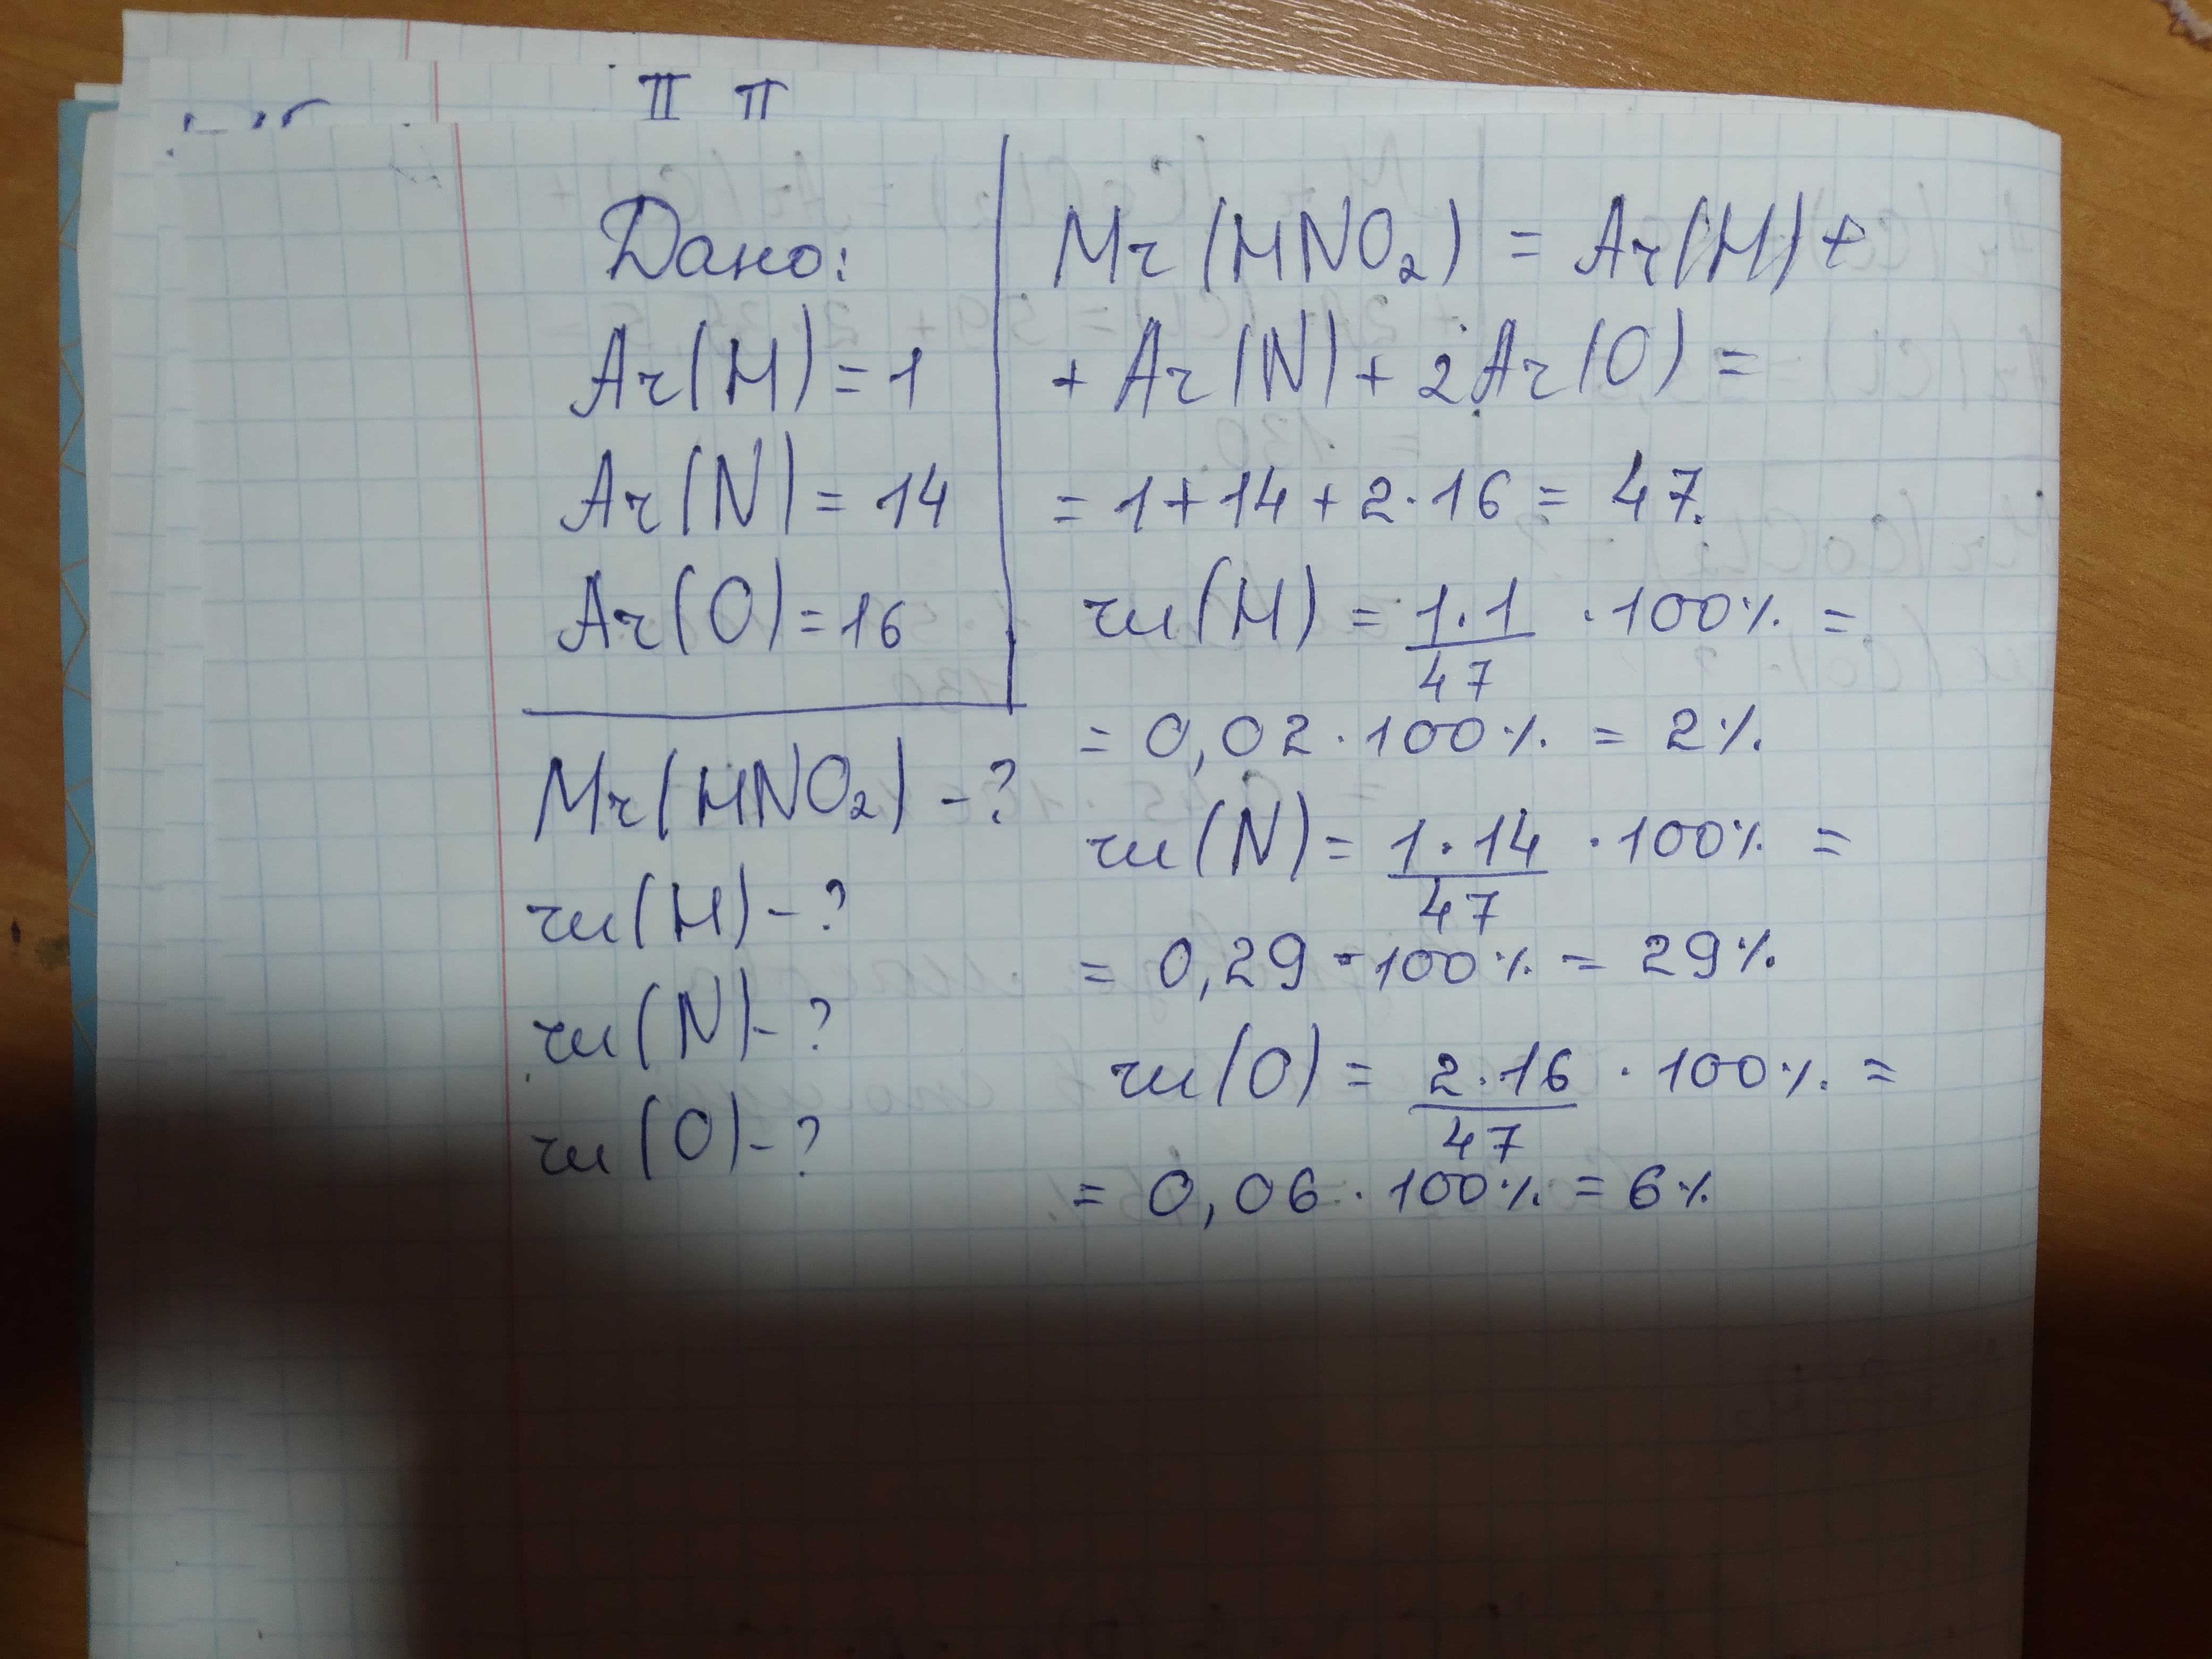 II II
Дано:
Ar(H) = 1
Ar(N) = 14
Ar(O) = 16
Mr(HNO2) - ?
ω(H) - ?
ω(N) - ?
ω(O) - ?
Mr(HNO2) = Ar(H) +
+ Ar(N) + 2Ar(O) =
= 1 + 14 + 2·16 = 47.
ω(H) = 1·1/47 · 100% =
= 0,02 · 100% = 2%.
ω(N) = 1·14/47 · 100% =
= 0,29 · 100% = 29%.
ω(O) = 2·16/47 · 100% =
= 0,06 · 100% = 6%